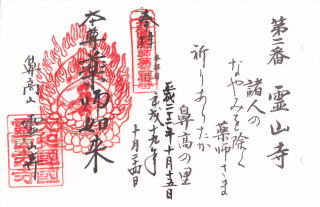 第二番 霊山寺
諸人の
なやみを除く
薬師さま
祈りあらたか
鼻高の里
平成二十二年十月十五日
平成十九年
十月二十四日
奉拝
本尊薬師如来
鼻高山 霊山寺